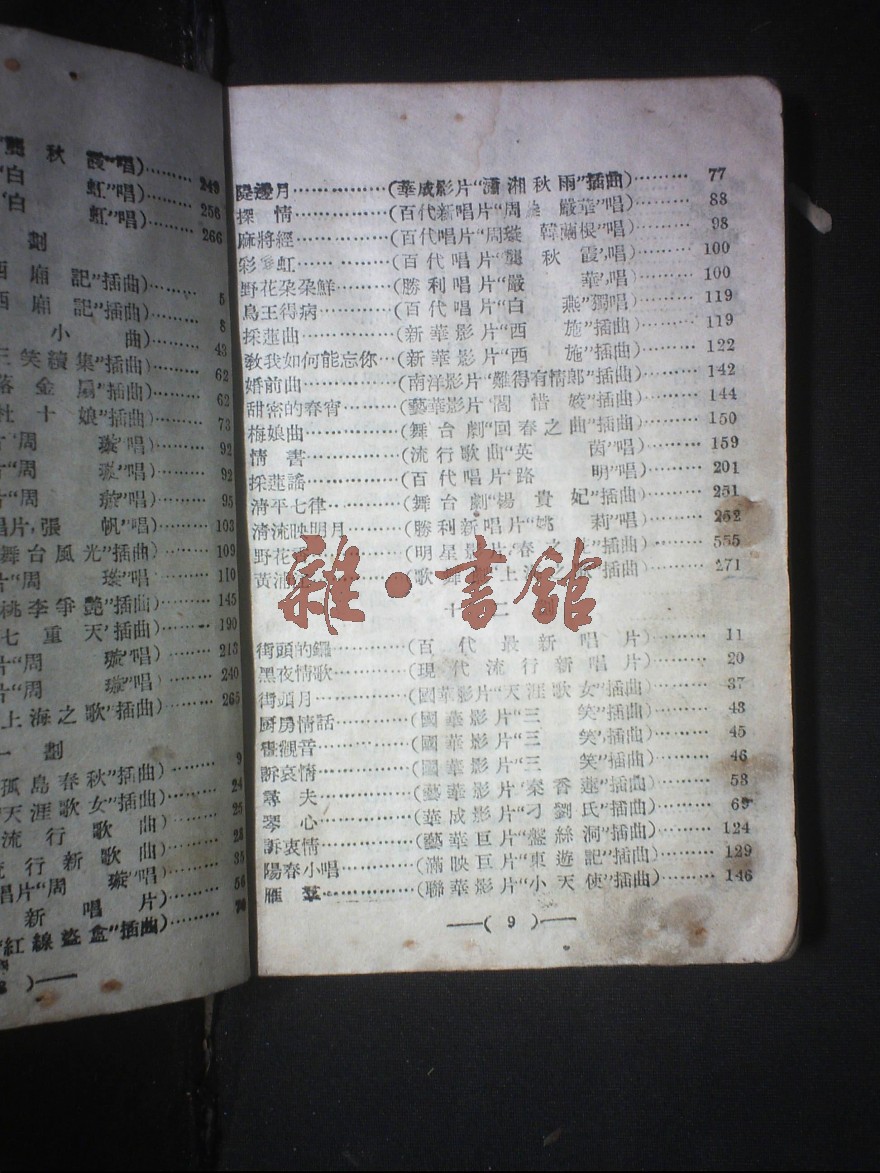 秋霞”唱)………249
“白 虹”唱)………256
“白 虹”唱)………266
劃
西廂記”插曲)………5
西廂記”插曲)………8
小 曲)………43
三笑續集”插曲)………62
落金扇”插曲)………62
杜十娘”插曲)………73
片“周 璇”唱)………92
片“周 璇”唱)………92
片“周 璇”唱)………95
唱片“張 帆”唱)………103
舞台風光”插曲)………109
片“周 璇”唱………110
桃李爭艷”插曲)………145
七重天”插曲)………190
片“周 璇”唱)………213
片“周 璇”唱)………240
上海之歌”插曲)………265
一 劃
孤島春秋”插曲)………9
“天涯歌女”插曲)………24
流行歌曲)………25
流行新歌曲)………28
唱片“周 璇”唱)………35
新唱片)………56
“紅線盜盒”插曲)………
堤邊月………(華成影片“瀟湘秋雨”插曲)………77
探 情………(百代新唱片“周 嚴華”唱)………88
麻將經………(百代唱片“周璇 韓蘭根”唱)………98
彩 虹………(百代唱片“龔秋霞”唱)………100
野花朶朶鮮………(勝利唱片“嚴 華”唱)………100
鳥王得病………(百代唱片“白 燕”獨唱)………119
採蓮曲………(新華影片“西 施”插曲)………119
敎我如何能忘你…(新華影片“西 施”插曲)………122
婚前曲………(南洋影片“難得有情郎”插曲)………142
甜密的春宵………(藝華影片“閻惜姣”插曲)………144
梅娘曲………(舞台劇“回春之曲”插曲)………150
情 書………(流行歌曲“英 茵”唱)………159
採蓮謠………(百代唱片“路 明”唱)………201
清平七律………(舞台劇“楊貴妃”插曲)………251
清流映明月………(勝利新唱片“姚 莉”唱………252
野花………(明星影片“春之 插曲)………555
黃浦………(歌舞 上海之 插曲)………271
十二
街頭的鑼………(百代最新唱片)………11
黑夜情歌………(現代流行新唱片)………20
街頭月………(國華影片“天涯歌女”插曲)………37
厨房情話………(國華影片“三 笑”插曲)………43
畫觀音………(國華影片“三 笑”插曲)………45
訴哀情………(國華影片“三 笑”插曲)………46
尋 夫………(藝華影片“秦香蓮”插曲)………58
琴 心………(華成影片“刁劉氏”插曲)………69
訴衷情………(藝華巨片“盤絲洞”插曲)………124
陽春小唱………(滿映巨片“東遊記”插曲)………129
雁 羣………(聯華影片“小天使”插曲)………146
—( 9 )—
雜·書館